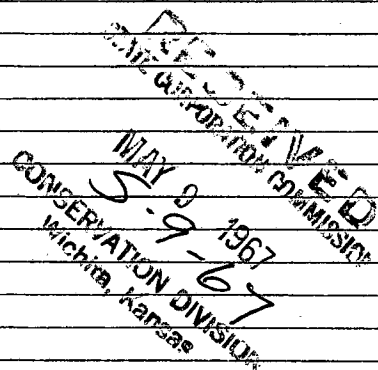 RECEIVED
STATE CORPORATION COMMISSION
MAY 9 1967
5-9-67
CONSERVATION DIVISION
Wichita, Kansas